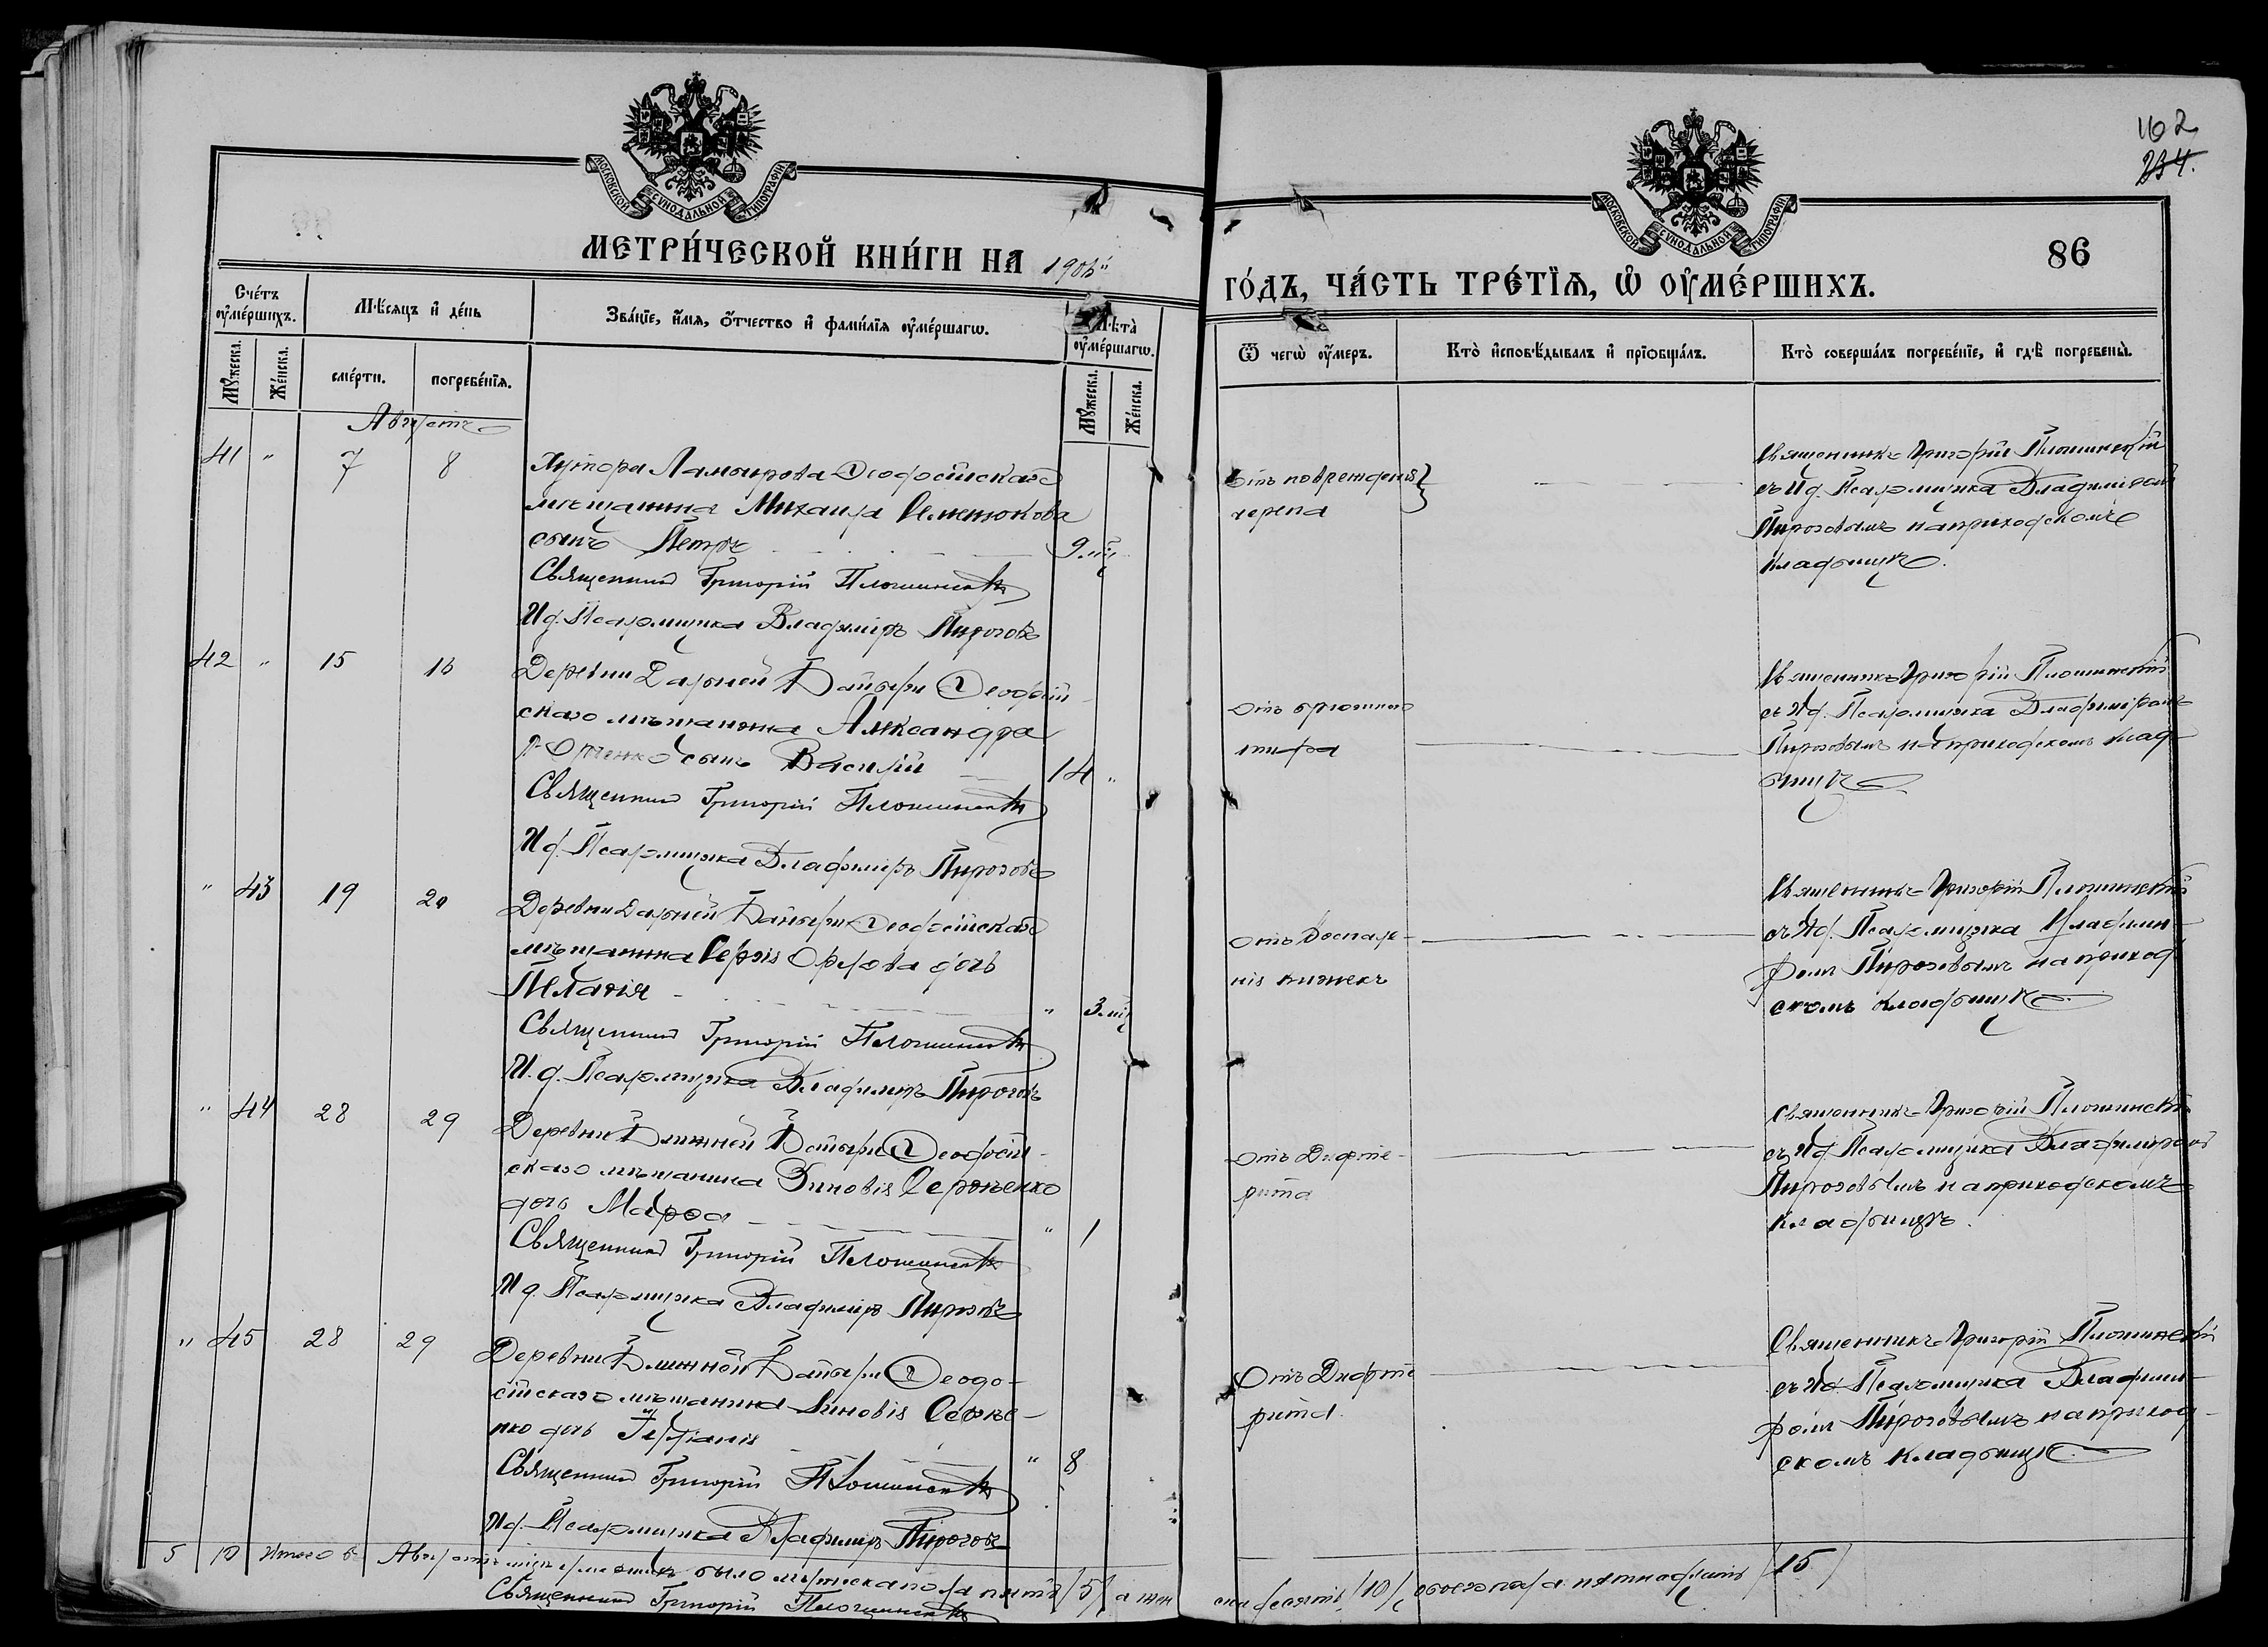 102
234.
МОСКОВСКОЙ СѴНОДАЛЬНОЙ ТИПОГРАФІИ
МЕТРИ́ЧЕСКОЙ КНИ́ГИ НА
МОСКОВСКОЙ СѴНОДАЛЬНОЙ ТИПОГРАФІИ
86
ГО́ДЪ, ЧА́СТЬ ТРЕ́ТІѦ, Ѡ ОУМЕ́РШИХЪ.
Сче́тъ оумершихъ.
Мужеска.
Же́нска.
Мѣсяцъ и де́нь
сме́рти.
погребе́нїя.
Зва́нїе, и́мя, о́тчество и фами́лїя оуме́ршагѡ.
Лѣта̀ оуме́ршагѡ.
Мужеска.
Же́нска.
Ѿ чегѡ̀ оу́меръ.
Кто̀ исповѣ́дывалъ и прїобща́лъ.
Кто̀ соверша́лъ погребе́нїе, и гдѣ̀ погребены̀.
Августъ
41 " 7 8
Хутора Феодосійскаго
мѣщанина Михаила
сынъ Петръ
9 мц
Священникъ Григорій Плошинскій
И.д. Псаломщика Владиміръ Пироговъ
Отъ поврежденія
черепа
Священникъ Григорій Плошинскій
съ И.д. Псаломщика Владиміромъ
Пироговымъ на приходскомъ
кладбищѣ.
42 " 15 16
Деревни Дальней Байбуги Феодосій-
скаго мѣщанина Александра
сынъ Василій
14 "
Священникъ Григорій Плошинскій
И.д. Псаломщика Владиміръ Пироговъ
Отъ брюшного
тифа
Священникъ Григорій Плошинскій
съ И.д. Псаломщика Владиміромъ
Пироговымъ на приходскомъ клад-
бищѣ
" 43 19 20
Деревни Дальней Байбуги Феодосійскаго
мѣщанина Сергія Орлова дочь
Пелагія
" 3 мц
Священникъ Григорій Плошинскій
И.д. Псаломщика Владиміръ Пироговъ
Отъ воспале-
нія кишекъ
Священникъ Григорій Плошинскій
съ И.д. Псаломщика Владими-
ромъ Пироговымъ на приход-
скомъ кладбищѣ
" 44 28 29
Деревни Ближней Байбуги Феодосій-
скаго мѣщанина Зиновія Сергѣенко
дочь Марфа
" 1
Священникъ Григорій Плошинскій
И.д. Псаломщика Владиміръ Пироговъ
Отъ Дифте-
рита
Священникъ Григорій Плошинскій
съ И.д. Псаломщика Владиміромъ
Пироговымъ на приходскомъ
кладбищѣ.
" 45 28 29
Деревни Ближней Байбуги Феодо-
сійскаго мѣщанина Зиновія Сергѣе-
нко дочь
" 8
Священникъ Григорій Плошинскій
И.д. Псаломщика Владиміръ Пироговъ
Отъ Дифте
рита.
Священникъ Григорій Плошинскій
съ И.д. Псаломщика Владими-
ромъ Пироговымъ на приход-
скомъ кладбищѣ
5 10 Итого въ Августѣ мѣс. умершихъ было мужеска пола пять /5/, а жен
ска десять /10/, обоего пола пятнадцать /15/
Священникъ Григорій Плошинскій